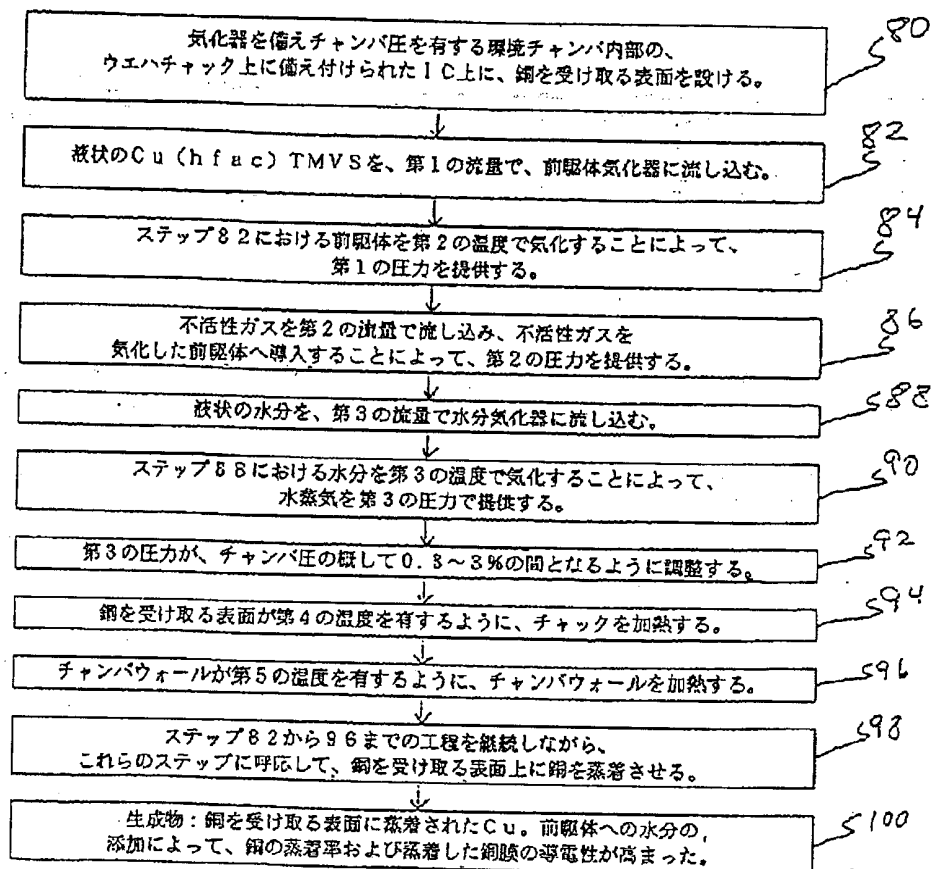 気化器を備えチャンバ圧を有する環境チャンバ内部の、
ウエハチャック上に備え付けられたIC上に、銅を受け取る表面を設ける。
80
液状のCu(hfac)TMVSを、第1の流量で、前駆体気化器に流し込む。
82
ステップ82における前駆体を第2の温度で気化することによって、
第1の圧力を提供する。
84
不活性ガスを第2の流量で流し込み、不活性ガスを
気化した前駆体へ導入することによって、第2の圧力を提供する。
86
液状の水分を、第3の流量で水分気化器に流し込む。
88
ステップ88における水分を第3の温度で気化することによって、
水蒸気を第3の圧力で提供する。
90
第3の圧力が、チャンバ圧の概して0.3～3%の間となるように調整する。
92
銅を受け取る表面が第4の温度を有するように、チャックを加熱する。
94
チャンバウォールが第5の温度を有するように、チャンバウォールを加熱する。
96
ステップ82から96までの工程を継続しながら、
これらのステップに呼応して、銅を受け取る表面上に銅を蒸着させる。
98
生成物：銅を受け取る表面に蒸着されたCu。前駆体への水分の
添加によって、銅の蒸着率および蒸着した銅膜の導電性が高まった。
100